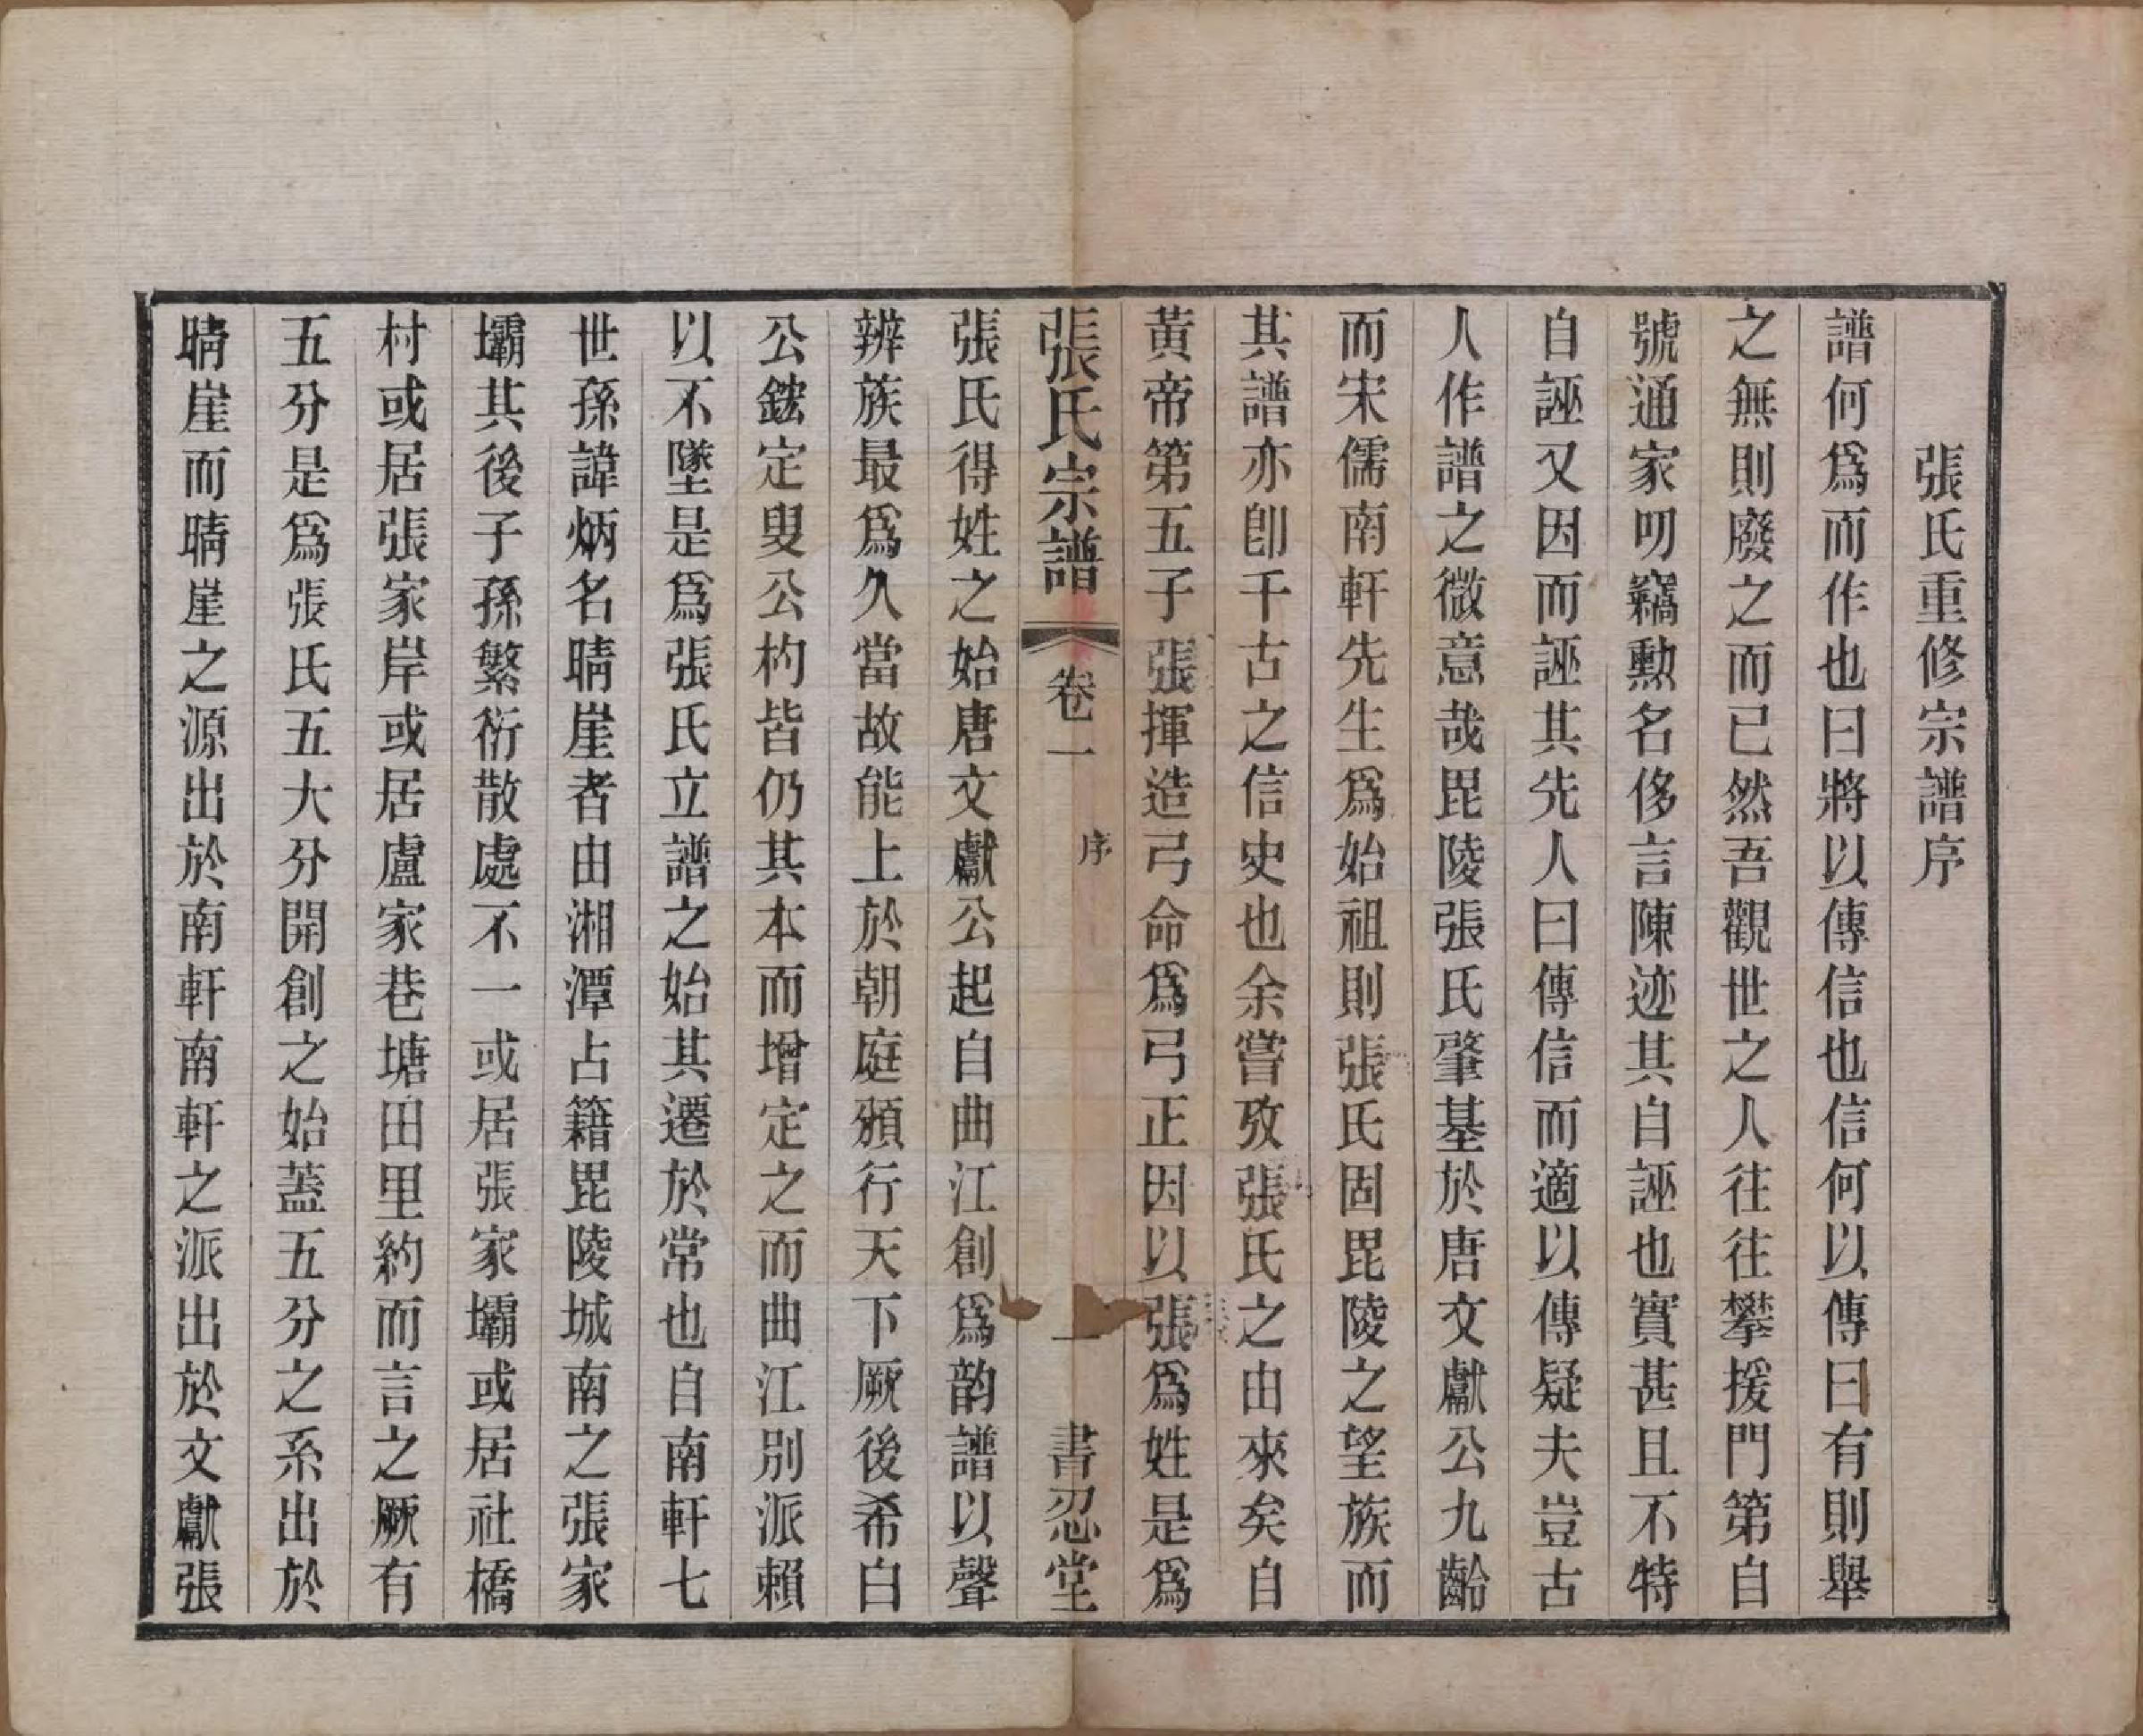 張氏重修宗譜序
譜何爲而作也曰將以傳信也信何以傳曰有則舉
之無則廢之而已然吾觀世之人往往攀援門第自
號通家叨竊勲名侈言陳迹其自誣也實甚且不特
自誣又因而誣其先人曰傳信而適以傳疑夫豈古
人作譜之微意哉毘陵張氏肇基於唐文獻公九齡
而宋儒南軒先生爲始祖則張氏固毘陵之望族而
其譜亦卽千古之信史也余嘗攷張氏之由來矣自
黃帝第五子張揮造弓命爲弓正因以張爲姓是爲
張氏宗譜 卷一 序 一 書忍堂
張氏得姓之始唐文獻公起自曲江創爲韵譜以聲
辨族最爲久當故能上於朝庭頒行天下厥後希白
公鋐定叟公杓皆仍其本而增定之而曲江別派賴
以不墜是爲張氏立譜之始其遷於常也自南軒七
世孫諱炳名晴崖者由湘潭占籍毘陵城南之張家
壩其後子孫繁衍散處不一或居張家壩或居社橋
村或居張家岸或居盧家巷塘田里約而言之厥有
五分是爲張氏五大分開創之始蓋五分之系出於
晴崖而晴崖之源出於南軒南軒之派出於文獻張